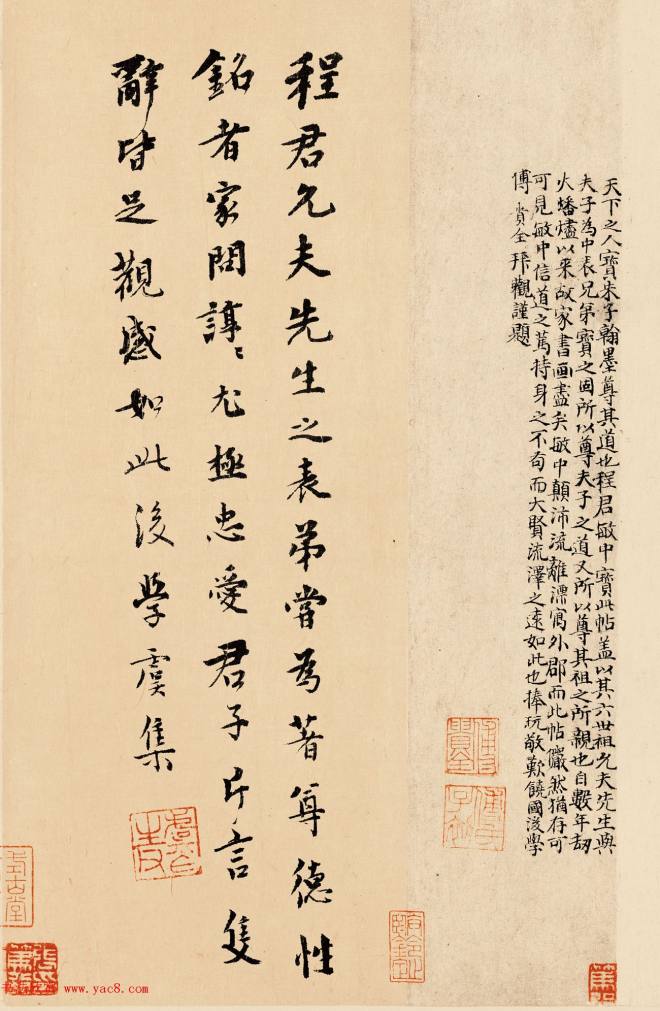 天下之人寶朱子翰墨尊其道也程君敏中寶此帖盖以其六世祖允夫先生與
夫子為中表兄弟寶之固所以尊夫子之道又所以尊其祖之所親也自數年劫
火蟠燼以来故家書画盡矣敏中顛沛流離漂寓外郡而此帖儼然猶存可
可見敏中信道之篤持身之不苟而大賢流澤之遠如此也捧玩敬歎饒國後學
傅貴全拜觀謹題
程君允夫先生之表弟嘗為著尊德性
銘者家問諄〻尤極忠愛君子片言隻
辭皆足觀感如此後學虞集
www.yac8.com